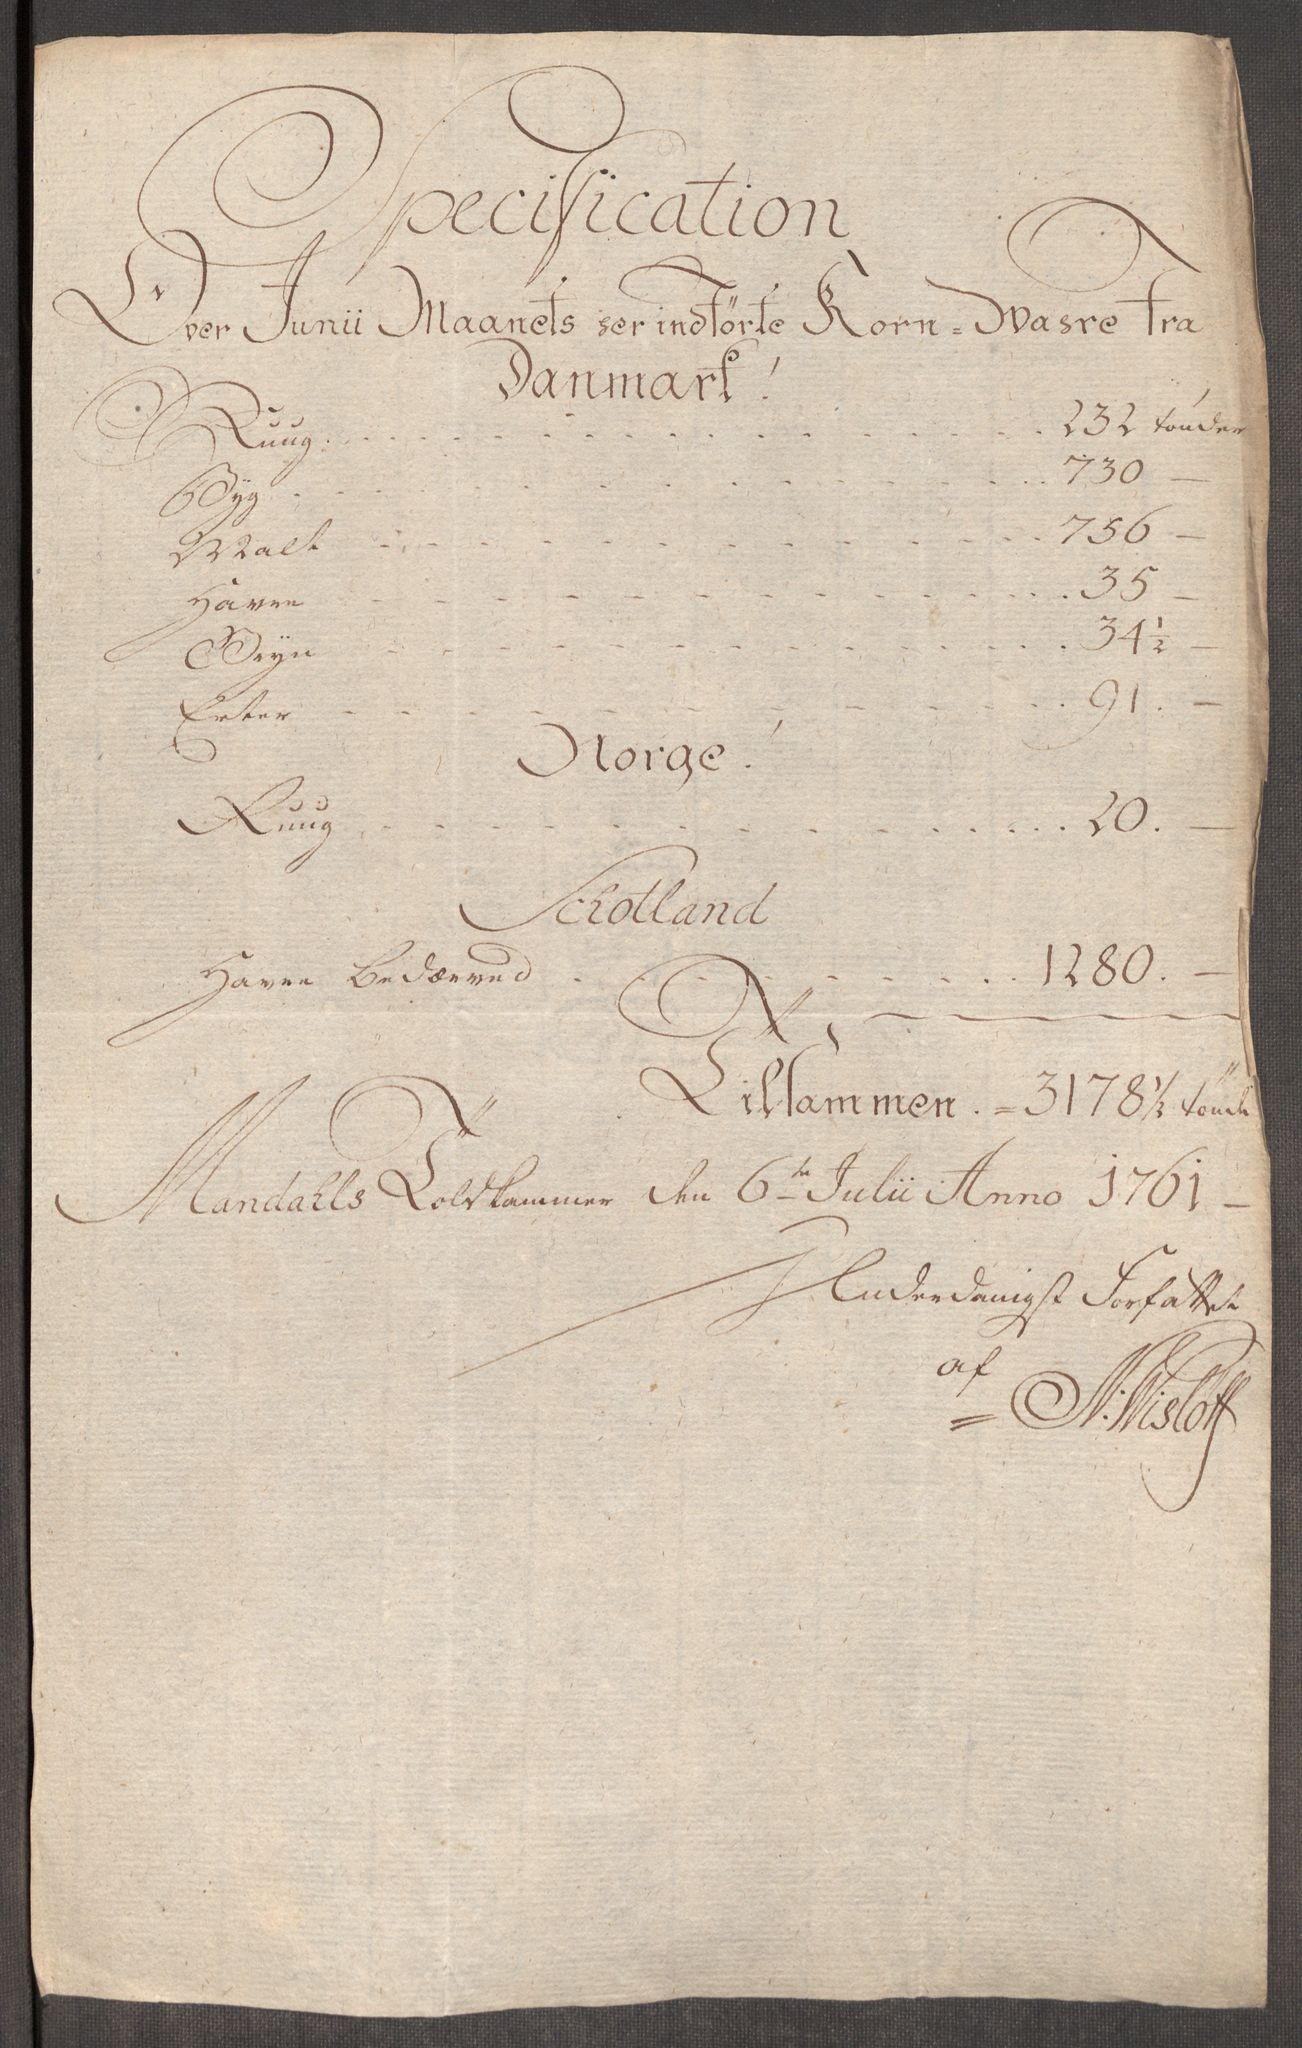 Specification
Over Junii Maanets her indførte Korn = Wahre fra
Danmark!
Ruug. 232 tønder
Byg 730 —
Malt 756 —
Havre 35 —
Gryn 34 1/2 —
Erter 91. —
Norge!
Ruug 20. —
Schotland
Havre bedærved 1280. —
Tilsammen. = 3178 1/2 tønde
Mandahls Toldkammer den 6te Julii Anno 1761 —
Underdanigst Forfattet
af
= N: Wisløff